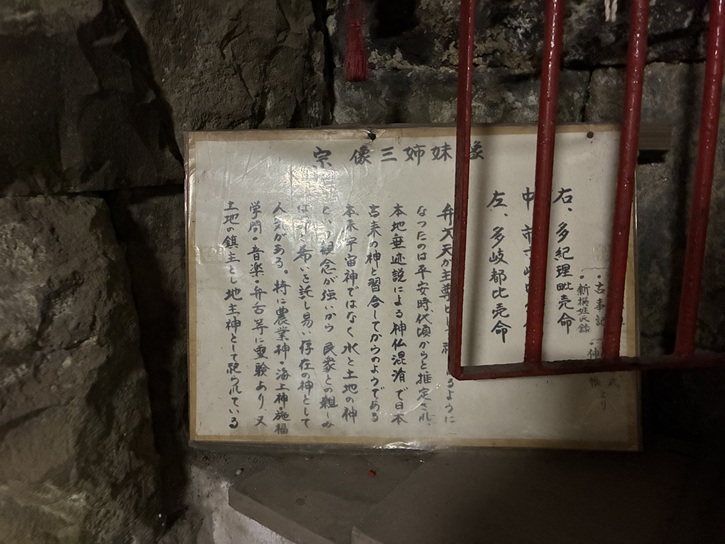 宗像三姉妹
・古事記
・新撰姓氏録
より
右、多紀理毗売命
中、市寸
左、多岐都比売命
弁才天が主尊とし るように
なったのは平安時代頃からと推定され、
本地垂迹説による神仏混淆で日本
古来の神と習合してからのようである
本来宇宙神ではなく水と土地の神
という観念が強いから民衆との親しみ
は 希いを託し易い存在の神として
人気がある。特に農業神・海上神施福
学問・音楽・弁舌等に霊験あり又
土地の鎮主とし地主神として祀られている